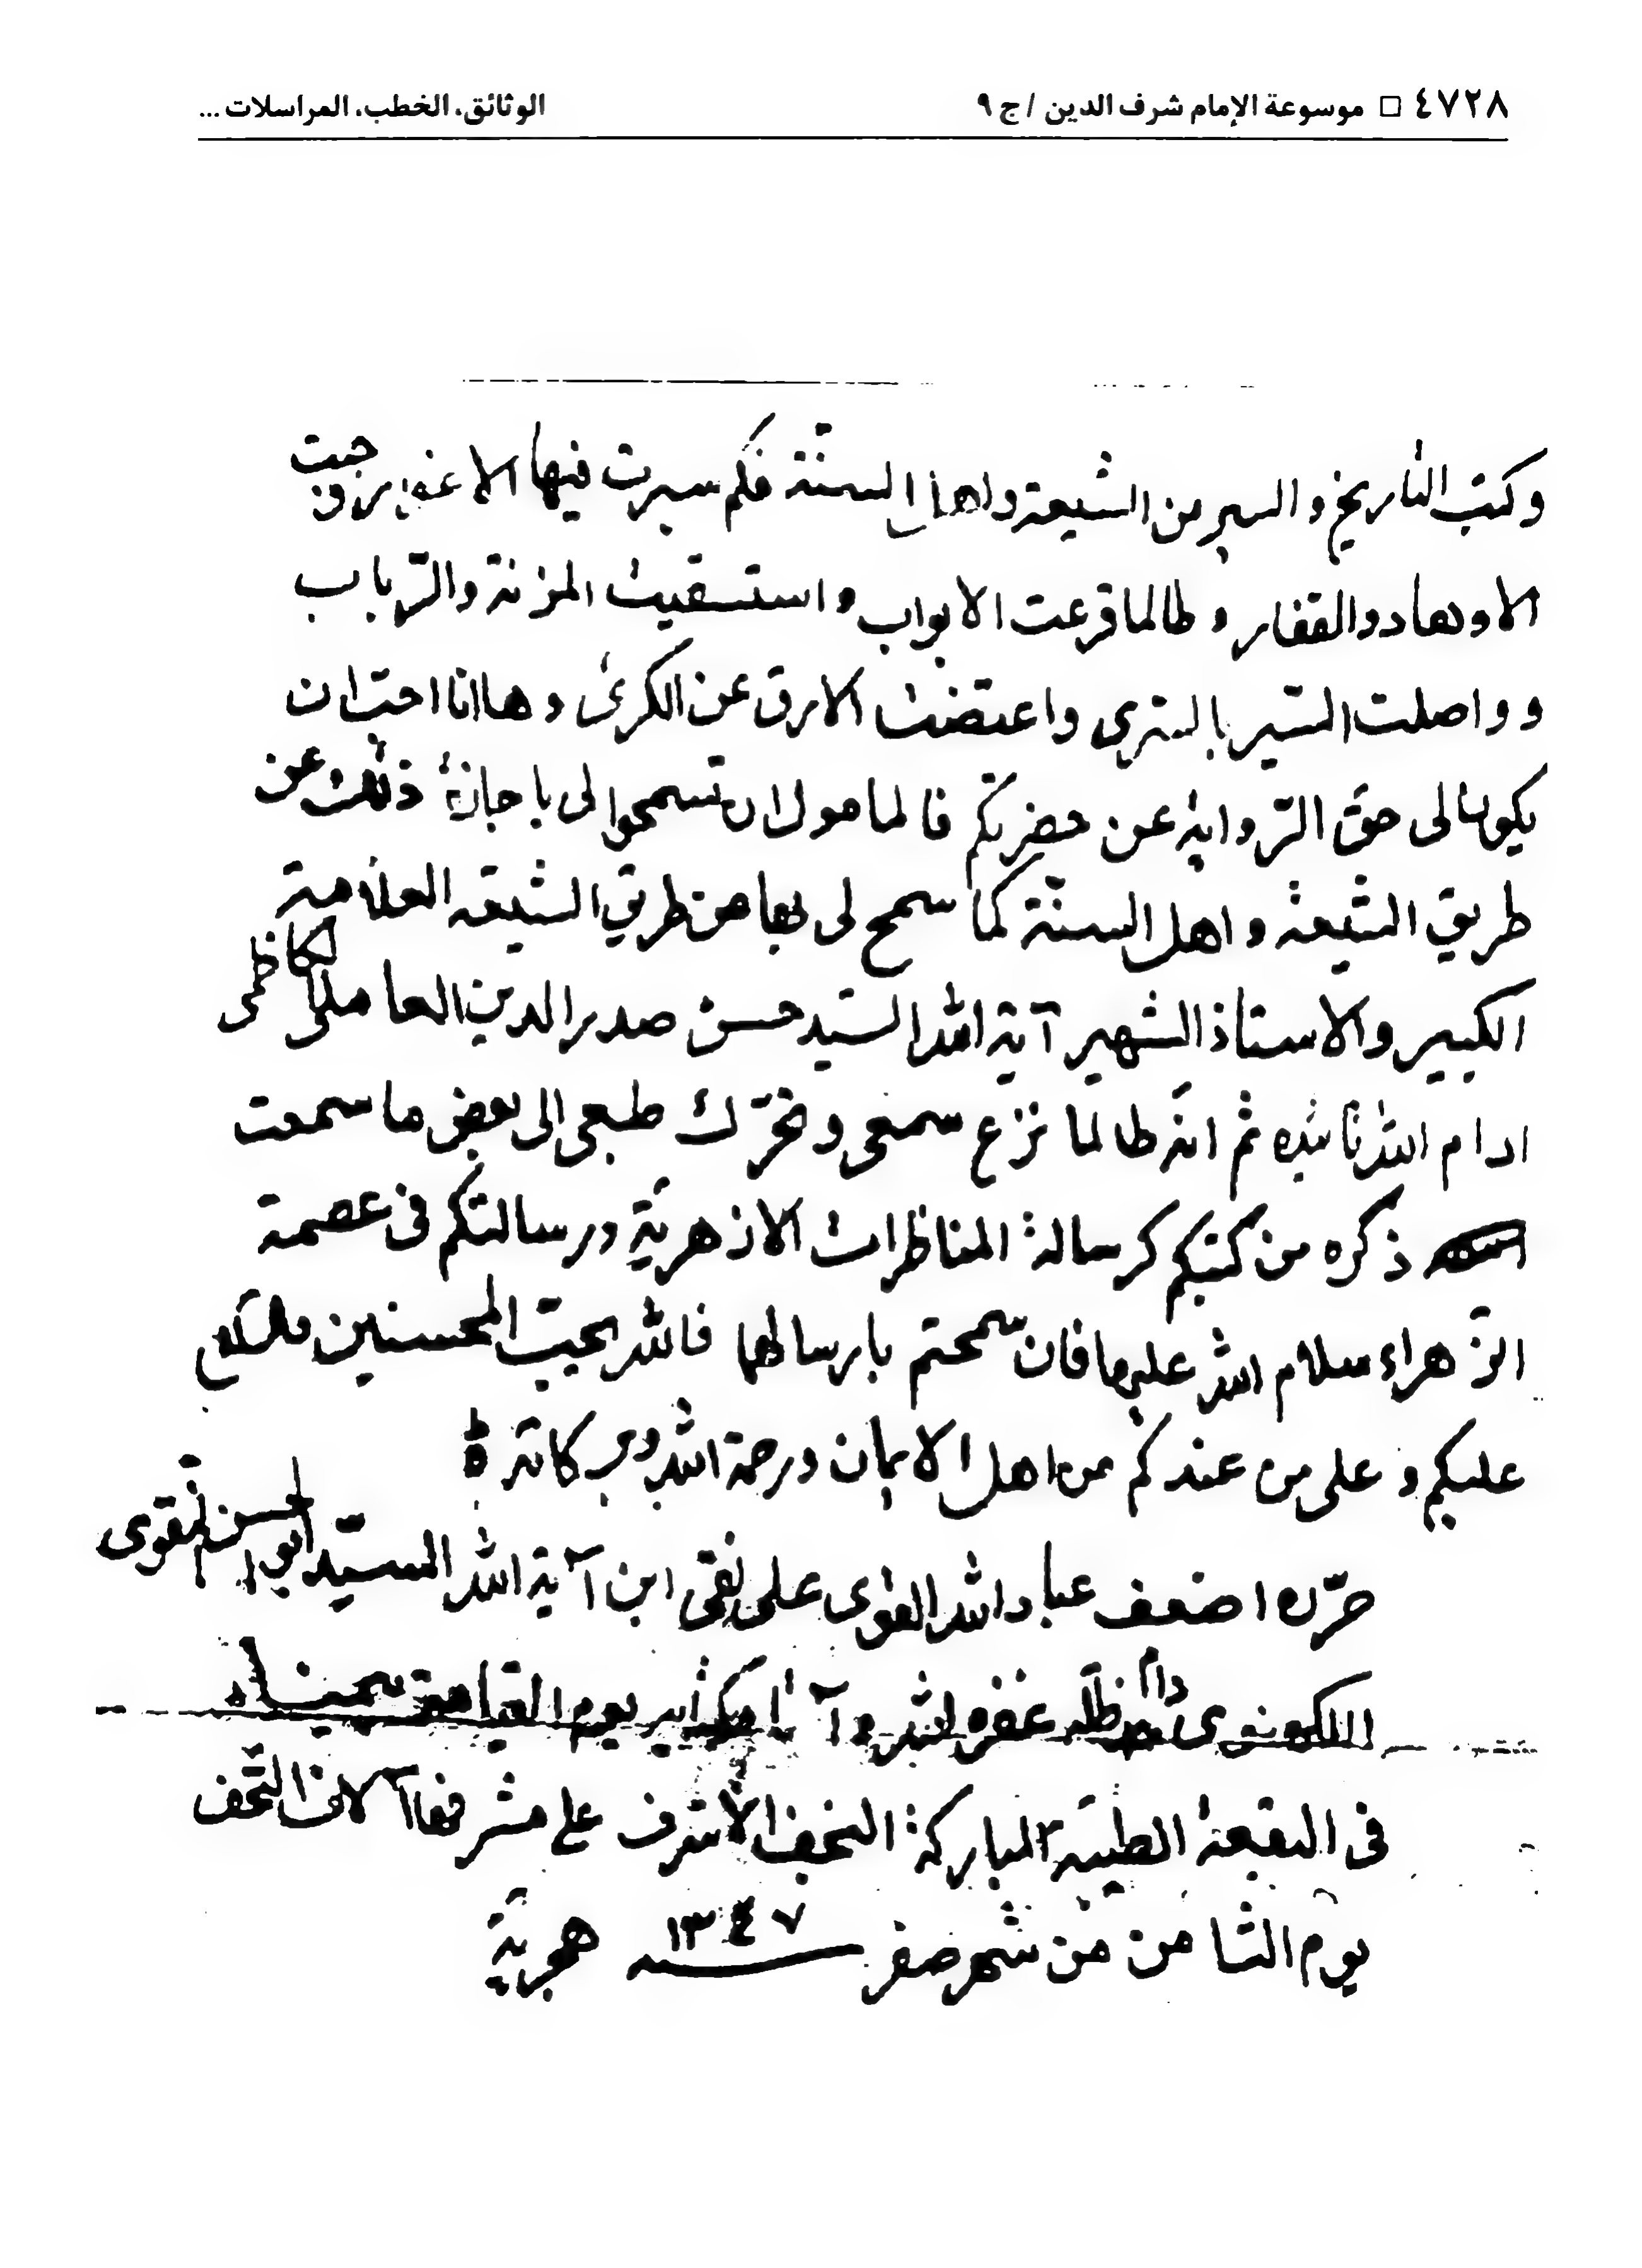 ٤٧٢٨ □ موسوعة الإمام شرف الدين / ج ٩
الوثائق، الخطب، المراسلات ...
وكتب التاريخ والسير من الشيعة واهل السنّة فكم سبرت فيها الاغوار وجبت
الاوهاد والقفار وطالما قرعت الابواب واستسقيت المزنة والرّباب
وواصلت السّير بالسّرى واعتضت الارق عن الكرى وها انا احبّ ان
يكون لى حقّ الرّواية عن حضرتكم فالمامول ان تسمحوا لى باجازة ذلك عن
طريق الشيعة واهل السنّة كما سمح لى بها من طريق الشيعه العلّامة
الكبير والاستاذ الشهير آية الله السّيد حسن صدر الدين العاملى الكاظمى
ادام الله تائيده ثم انّه طالما نزع سمعى وتحرّك طبعى الى بعض ما سمعت
ذكره من كتبكم كرسالة المناظرات الازهريّة ورسالتكم فى عصمة
الزّهراء سلام الله عليها فان سمحتم بارسالهما فالله يحبّ المحسنين والسّلام
عليكم وعلى من عندكم من اهل الايمان ورحمة الله وبركاته
حرّره اضعف عباد الله القوى على نقى ابن آية الله السيّد ابو الحسن النّقوى
اللكهنوى دام ظلّه غفره الله وآتاه كتابه يوم القيامة بيمينه
فى البقعة الطيّبة المباركة النجف الاشرف على مشرفها آلاف التّحف
يوم الثّامن من شهر صفر سنه ١٣٤٧ هجريّة